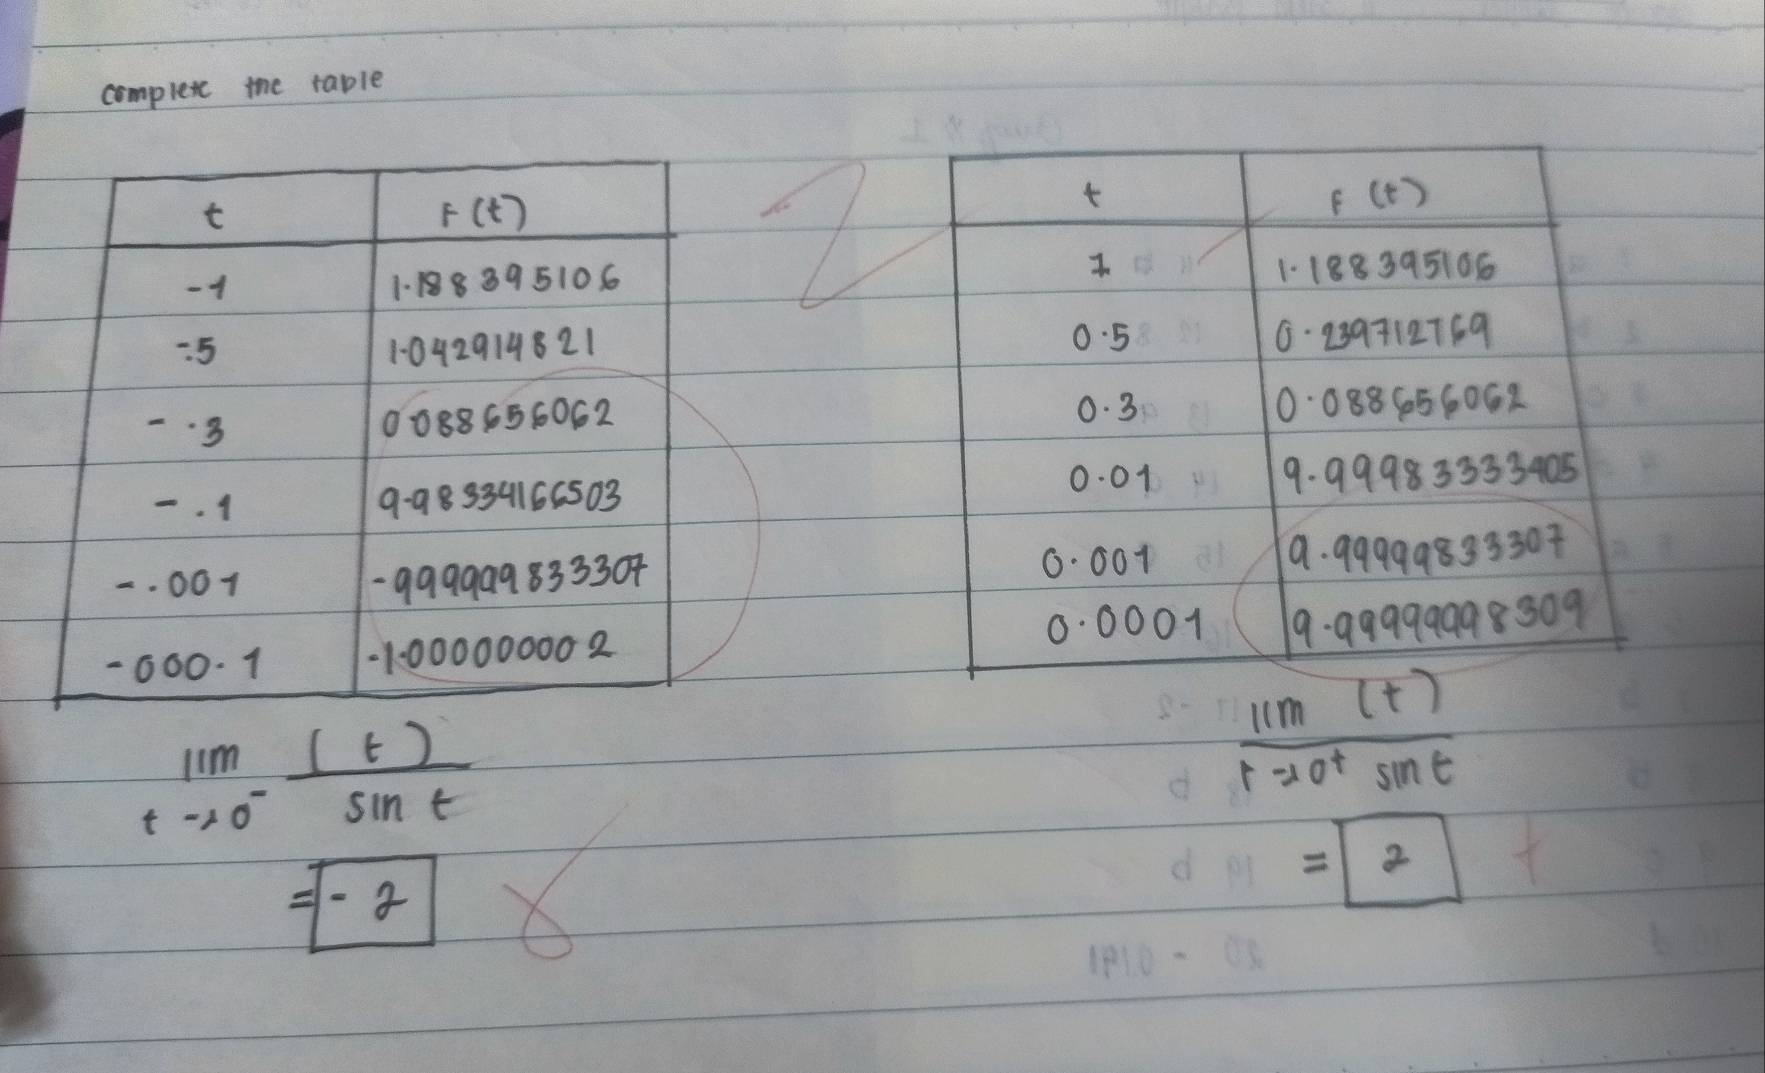 complete the table
t F(t)
-1 1.188395106
-.5 1.042914821
-.3 0.088656062
-.1 9.98334166503
-.001 -999999833307
-000.1 -1.000000002
lim (t)
t→0⁻ sin t
= -2
t F(t)
1 1.188395106
0.5 0.239712769
0.3 0.088656062
0.01 9.99983333405
0.001 9.99999833307
0.0001 9.99999998309
lim (t)
t→0⁺ sin t
= 2